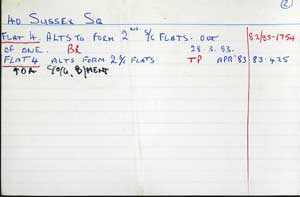 ②
40 SUSSEX SQ
FLAT 4. ALTS TO FORM 2 NO. S/C FLATS. OUT 82/33-1754
OF ONE. BR 28.3.83.
FLAT 4 ALTS FORM 2 S/C FLATS TP APR'83 83.425
B/MENT